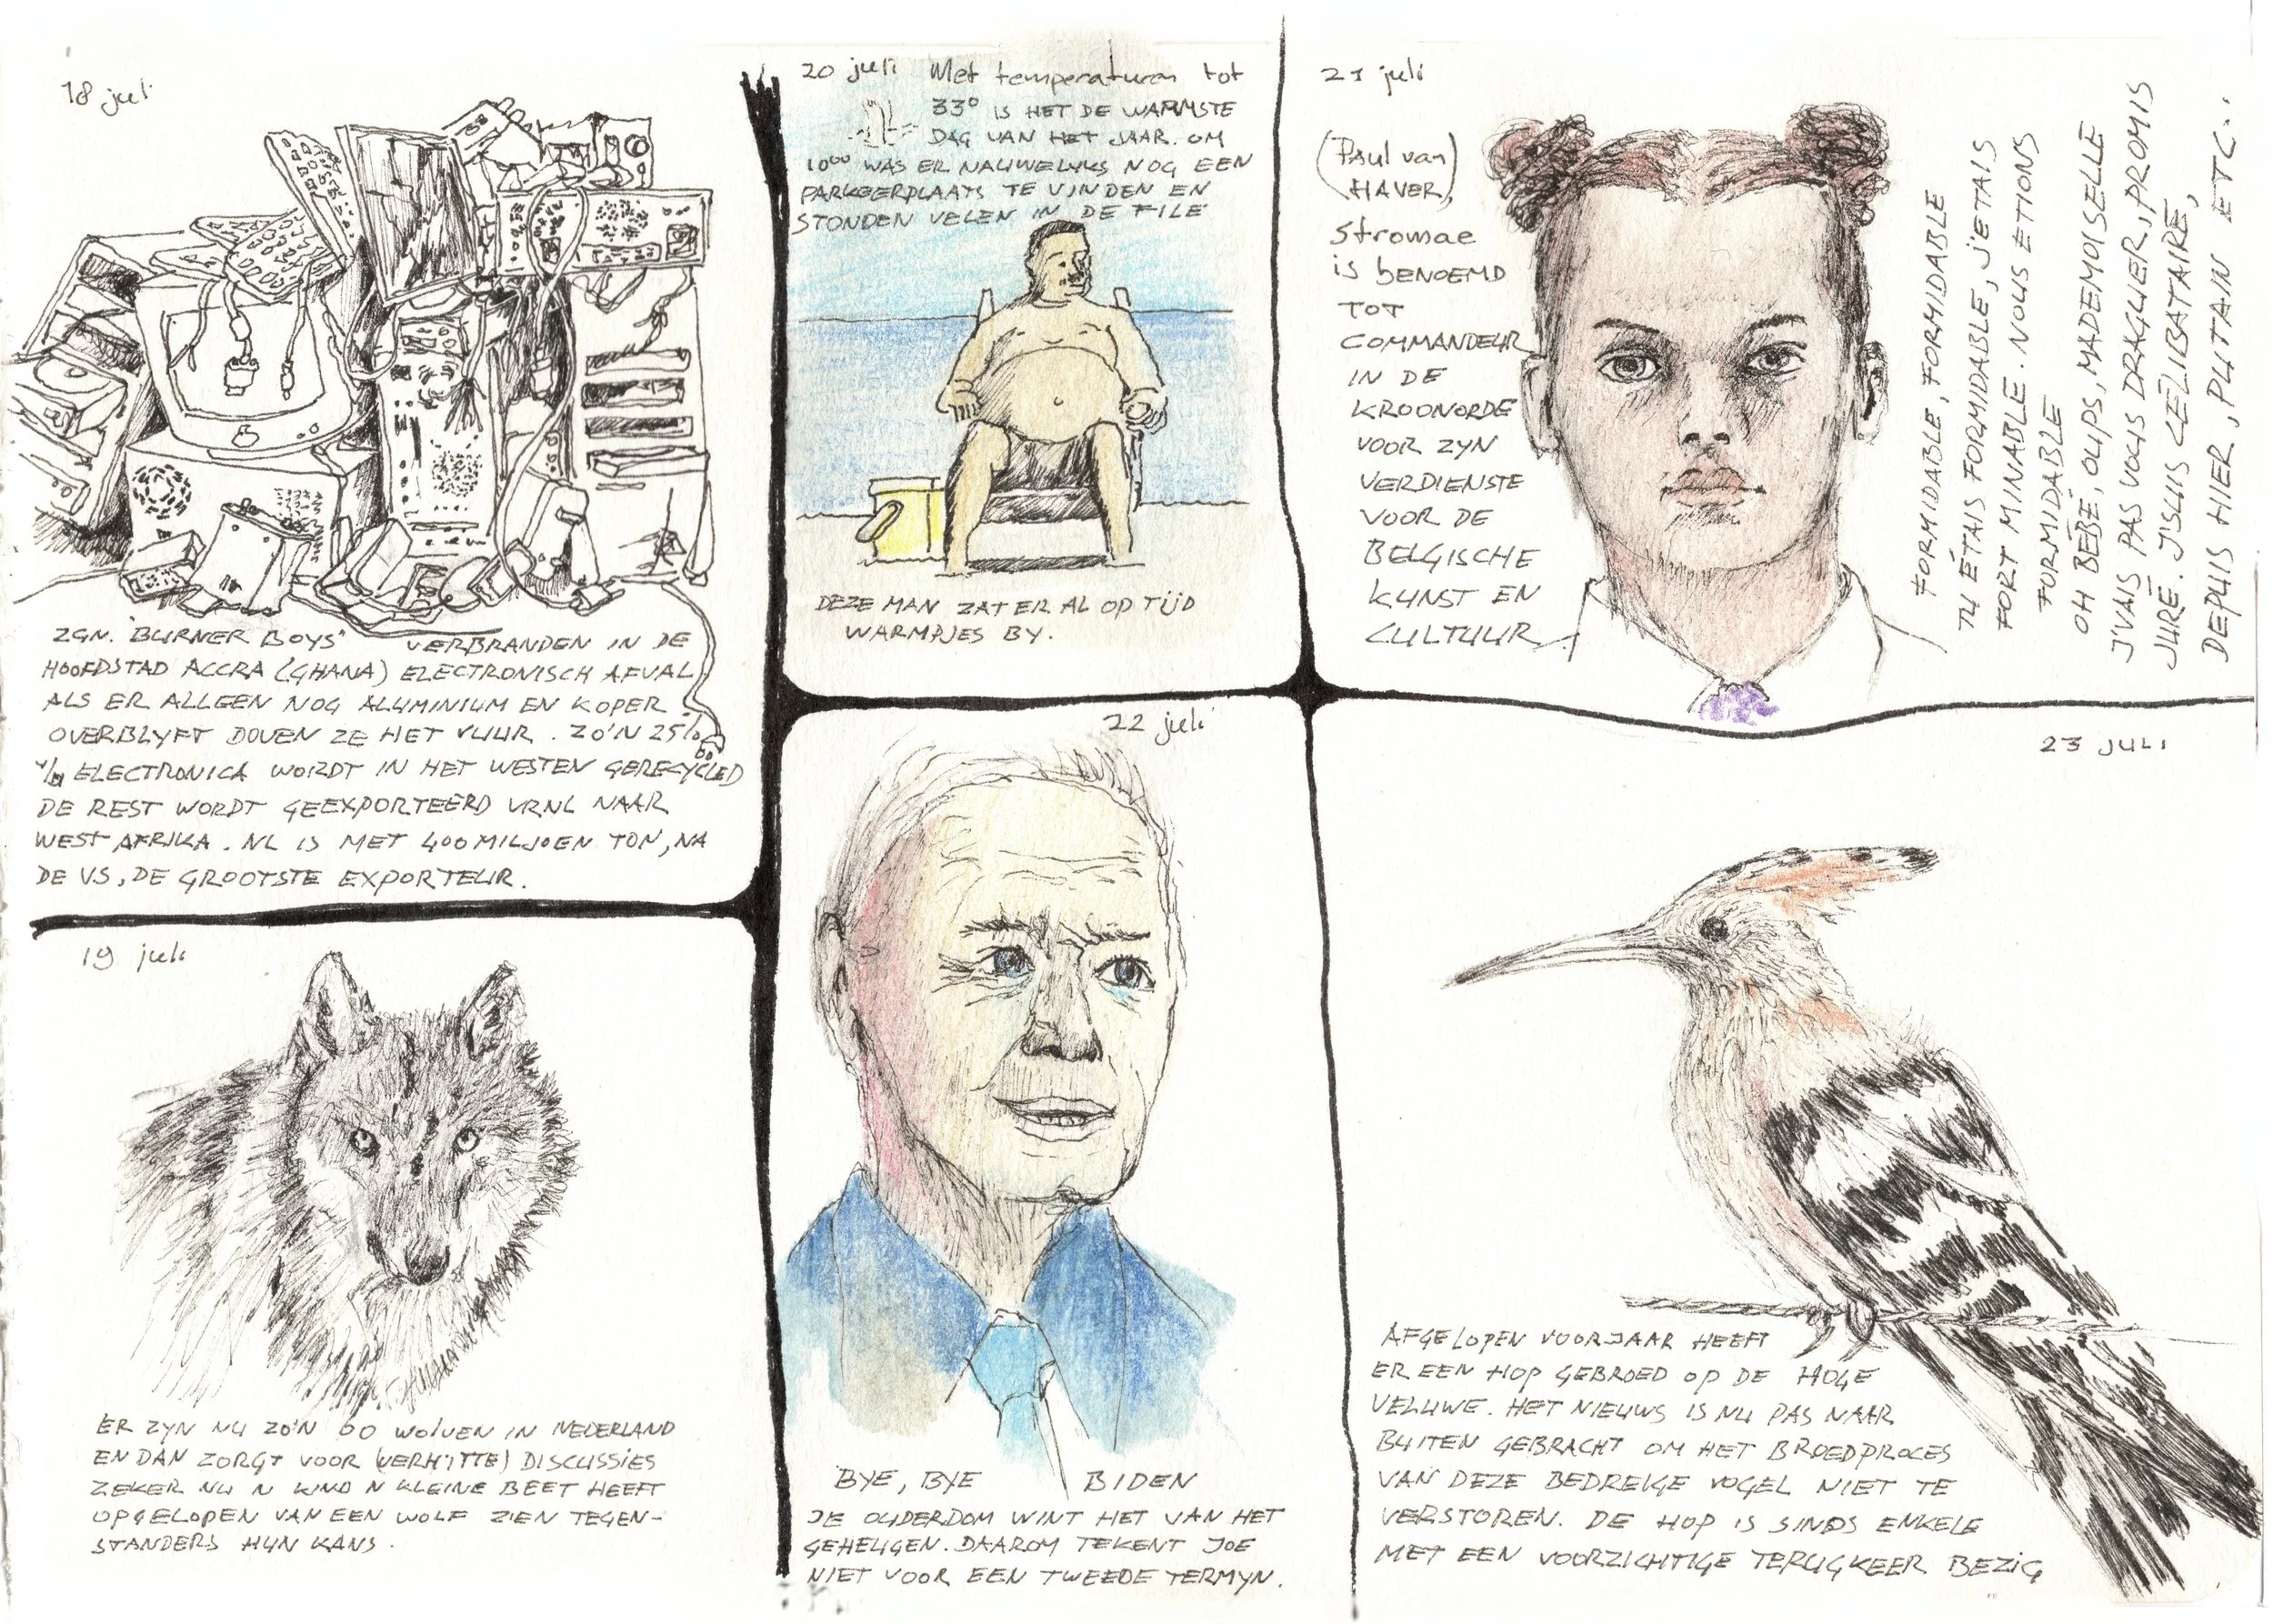 18 juli
ZGN. "BURNER BOYS" VERBRANDEN IN DE
HOOFDSTAD ACCRA (GHANA) ELECTRONISCH AFVAL
ALS ER ALLEEN NOG ALUMINIUM EN KOPER
OVERBLYFT DOVEN ZE HET VUUR. ZO'N 25%
ELECTRONICA WORDT IN HET WESTEN GERECYCLED
DE REST WORDT GEEXPORTEERD VRNL NAAR
WEST AFRIKA. NL IS MET 400 MILJOEN TON, NA
DE VS, DE GROOTSTE EXPORTEUR.
19 juli
ER ZYN NU ZO'N 60 WOLVEN IN NEDERLAND
EN DAN ZORGT VOOR (VERHITTE) DISCUSSIES
ZEKER NU N KIND N KLEINE BEET HEEFT
OPGELOPEN VAN EEN WOLF ZIEN TEGEN-
STANDERS HUN KANS.
20 juli Met temperaturen tot
33° IS HET DE WARMSTE
DAG VAN HET JAAR. OM
10⁰⁰ WAS ER NAUWELYKS NOG EEN
PARKEERPLAATS TE VINDEN EN
STONDEN VELEN IN DE FILE
DEZE MAN ZAT ER AL OP TIJD
WARMPJES BY.
21 juli
(Paul van)
HAVER,
Stromae
is BENOEMD
TOT
COMMANDEUR
IN DE
KROONORDE
VOOR ZYN
VERDIENSTE
VOOR DE
BELGISCHE
KUNST EN
CULTUUR.
FORMIDABLE, FORMIDABLE
TU ÉTAIS FORMIDABLE, J'ETAIS
FORT MINABLE. NOUS ETIONS
FORMIDABLE
OH BÉBÉ, OUPS, MADEMOISELLE
J'VAIS PAS VOUS DRAGUER, PROMIS
JURÉ. J'SUIS CÉLIBATAIRE,
DEPUIS HIER, PUTAIN ETC..
22 juli
BYE, BYE BIDEN
JE OUDERDOM WINT HET VAN HET
GEHEUGEN. DAAROM TEKENT JOE
NIET VOOR EEN TWEEDE TERMYN.
23 JULI
AFGELOPEN VOORJAAR HEEFT
ER EEN HOP GEBROED OP DE HOGE
VELUWE. HET NIEUWS IS NU PAS NAAR
BUITEN GEBRACHT OM HET BROEDPROCES
VAN DEZE BEDREIGE VOGEL NIET TE
VERSTOREN. DE HOP IS SINDS ENKELE
MET EEN VOORZICHTIGE TERUGKEER BEZIG